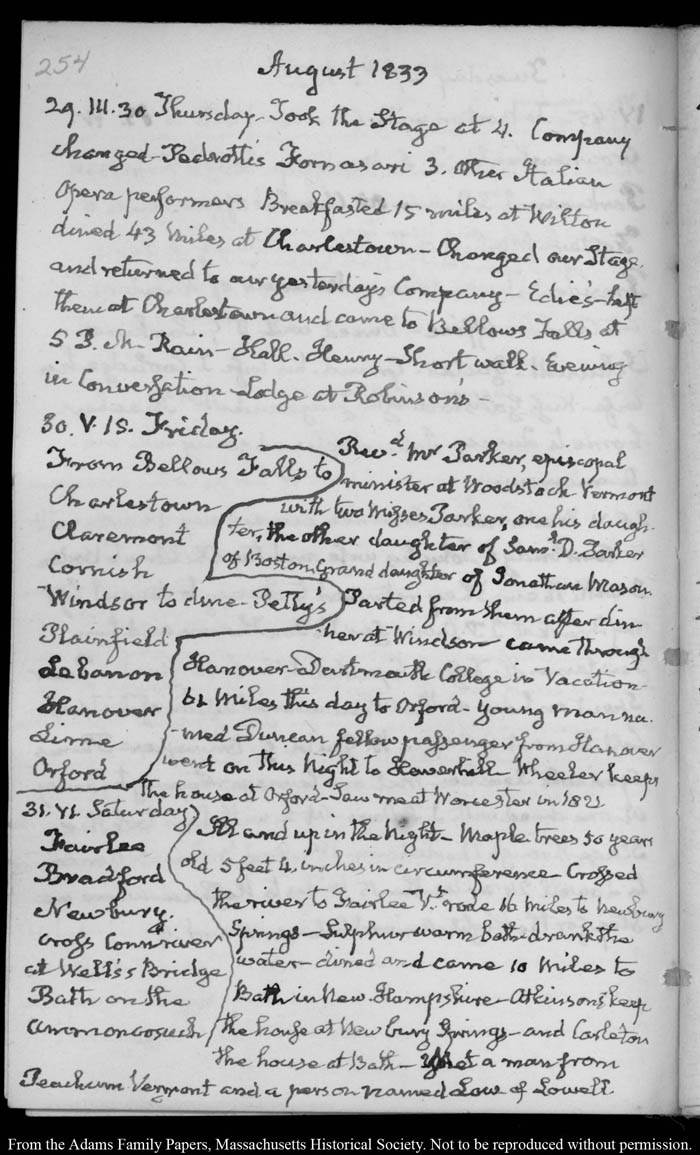 254
August 1833
29. III. 30 Thursday. Took the Stage at 4. Company
changed - Pedrotti's Fornasari 3. other Italian
Opera performers Breakfasted 15 miles at Wilton
dined 43 Miles at Charlestown - Changed our Stage
and returned to our yesterday's Company - Edie's - left
them at Charlestown and came to Bellows Falls at
5 P. M. Rain - Hall. Henry - Short walk. Evening
in Conversation Lodge at Robinson's -
30. V. 15. Friday.
From Bellows Falls to
Charlestown
Claremont
Cornish
Windsor to dine - Petty's
Plainfield
Lebanon
Hanover
Lime
Orford
Revd. Mr Parker, episcopal
minister at Woodstock Vermont
with two Misses Parker, one his daugh-
ter, the other daughter of Saml. D. Parker
of Boston, Grand daughter of Jonathan Mason.
Parted from them after din-
ner at Windsor came through
Hanover - Dartmouth College in Vacation
61 Miles this day to Orford - Young man na-
med Duncan fellow passenger from Hanover
went on this Night to Haverhill - Wheeler keeps
the house at Orford - Saw me at Worcester in 1821
31. VI. Saturday
Fairlee
Bradford
Newbury.
cross Conn river
at Wells's Bridge
Bath on the
Ammonoosuck
Ill and up in the Night - Maple trees 50 years
old 5 feet 4 inches in circumference - Crossed
the river to Fairlee Vt. rode 16 Miles to Newbury
Springs - Sulphur warm bath - drank the
water - dined and came 10 Miles to
Bath in New Hampshire - Atkinsons keep
the house at Newbury Springs - and Carleton
the house at Bath - Met a man from
Peachum Vermont and a person named Low of Lowell.
From the Adams Family Papers, Massachusetts Historical Society. Not to be reproduced without permission.